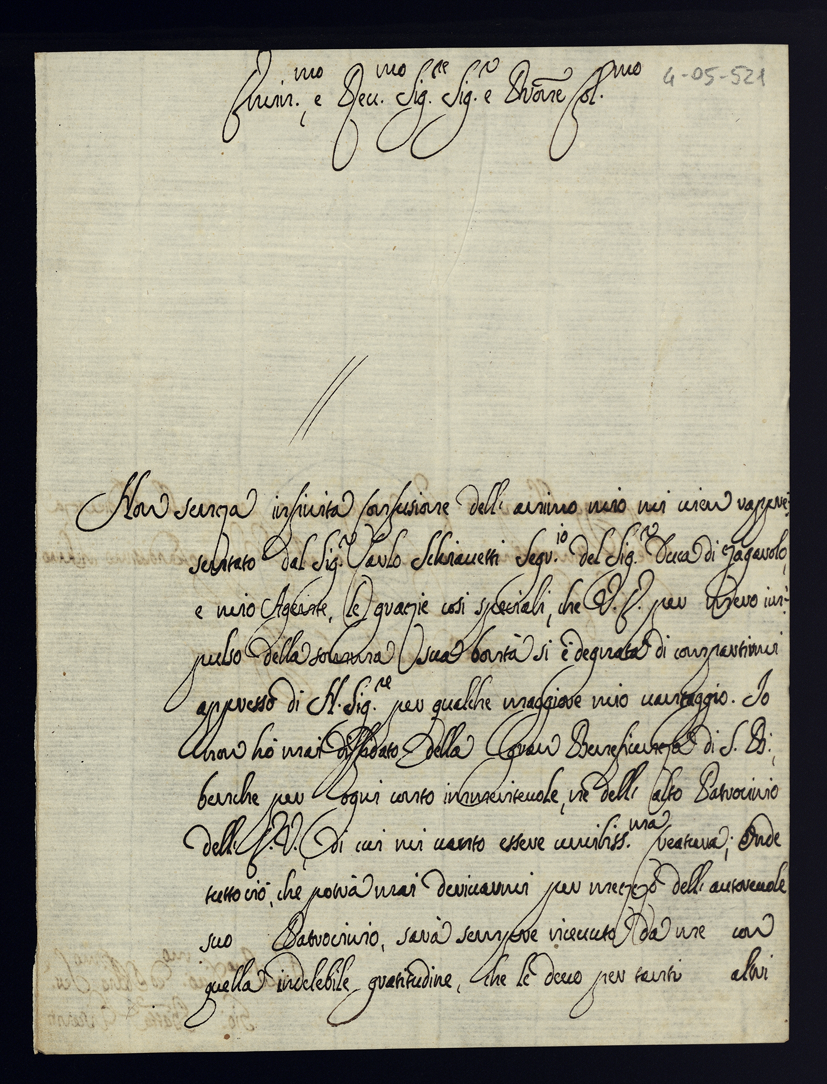 Emin.mo, e Rev.mo Sig.re Sig.r e Pron̄e Col.mo
4-05-521
Non senza infinita confusione dell' animo mio mi vien rappre:
sentato dal Sig.r Paolo Schiavetti Segr.io del Sig.r Duca di Zagarolo,
e mio Agente, le grazie così speciali, che V. E. per mero im:
pulso della somma sua bontà si è degnata di compartirmi
appresso di N. Sig.re per qualche maggiore mio vantaggio. Io
non hò mai diffidato della Gran Beneficenza di S. B.,
benche per ogni conto immeritevole, ne dell' alto Patrocinio
dell' E. V., di cui mi vanto essere umiliss.ma creatura; Onde
tutto ciò, che potrà mai derivarmi per mezzo dell' autorevole
suo Patrocinio, sarà sempre ricevuto da me con
quella indelebile gratitudine, che le devo per tanti altri